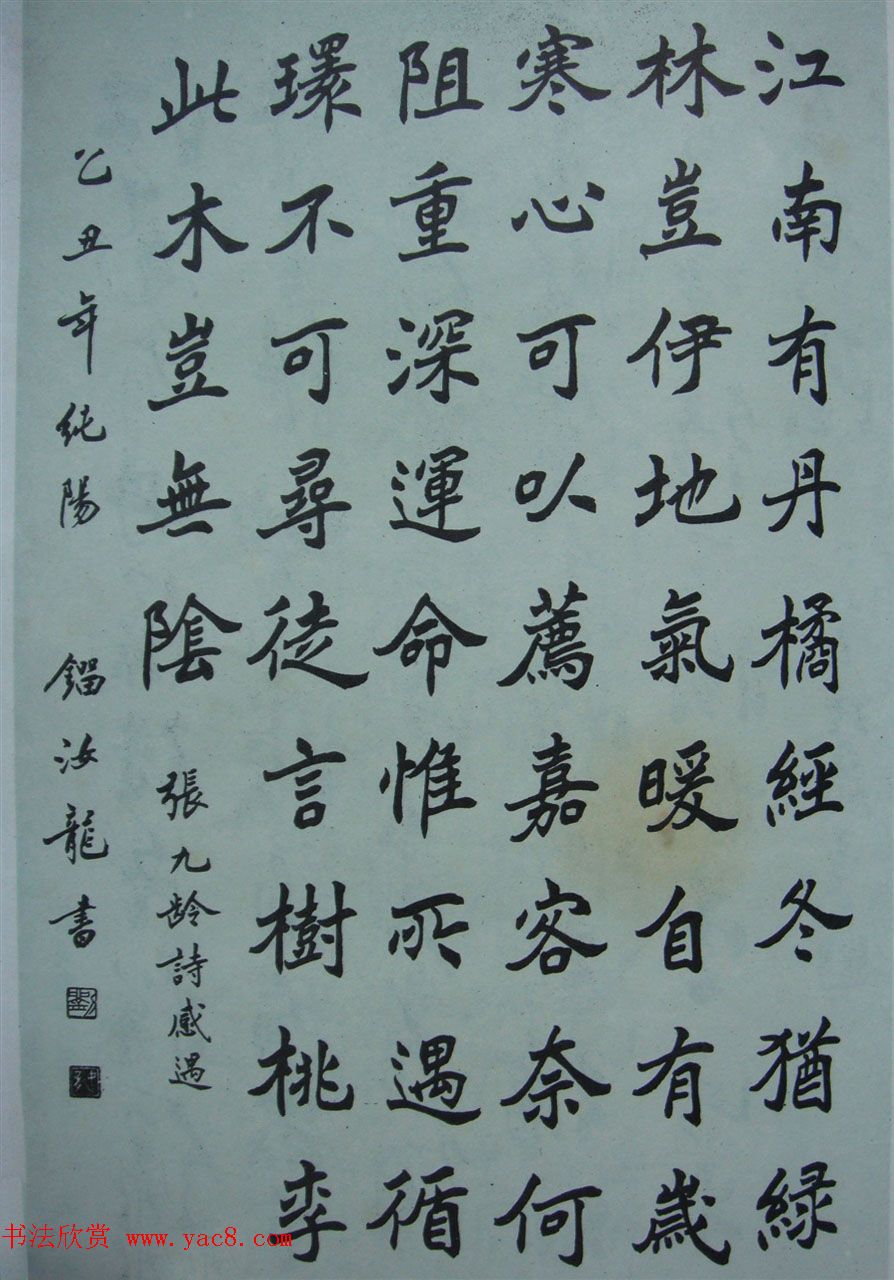 江南有丹橘經冬猶緑
林豈伊地氣暖自有歲
寒心可以薦嘉客奈何
阻重深運命惟所遇循
環不可尋徒言樹桃李
此木豈無陰
張九齡詩感遇
乙丑年純陽
鎦汝龍書
劉
书法欣赏 www.yac8.com